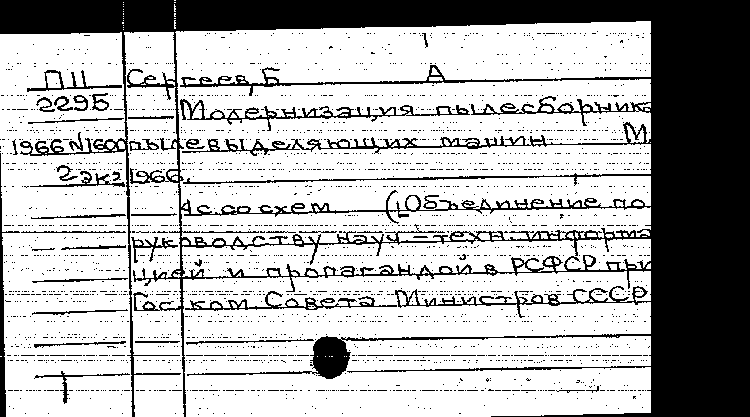 П11 Сергеев, Б А
229Б Модернизация пылесборника
1966 N1600 пылевыделяющих машин М.
2 экз 1966.
4с. со схем (Объединение по
руководству науч-техн. информа
цией и пропагандой в РСФСР при
Гос. ком Совета Министров СССР